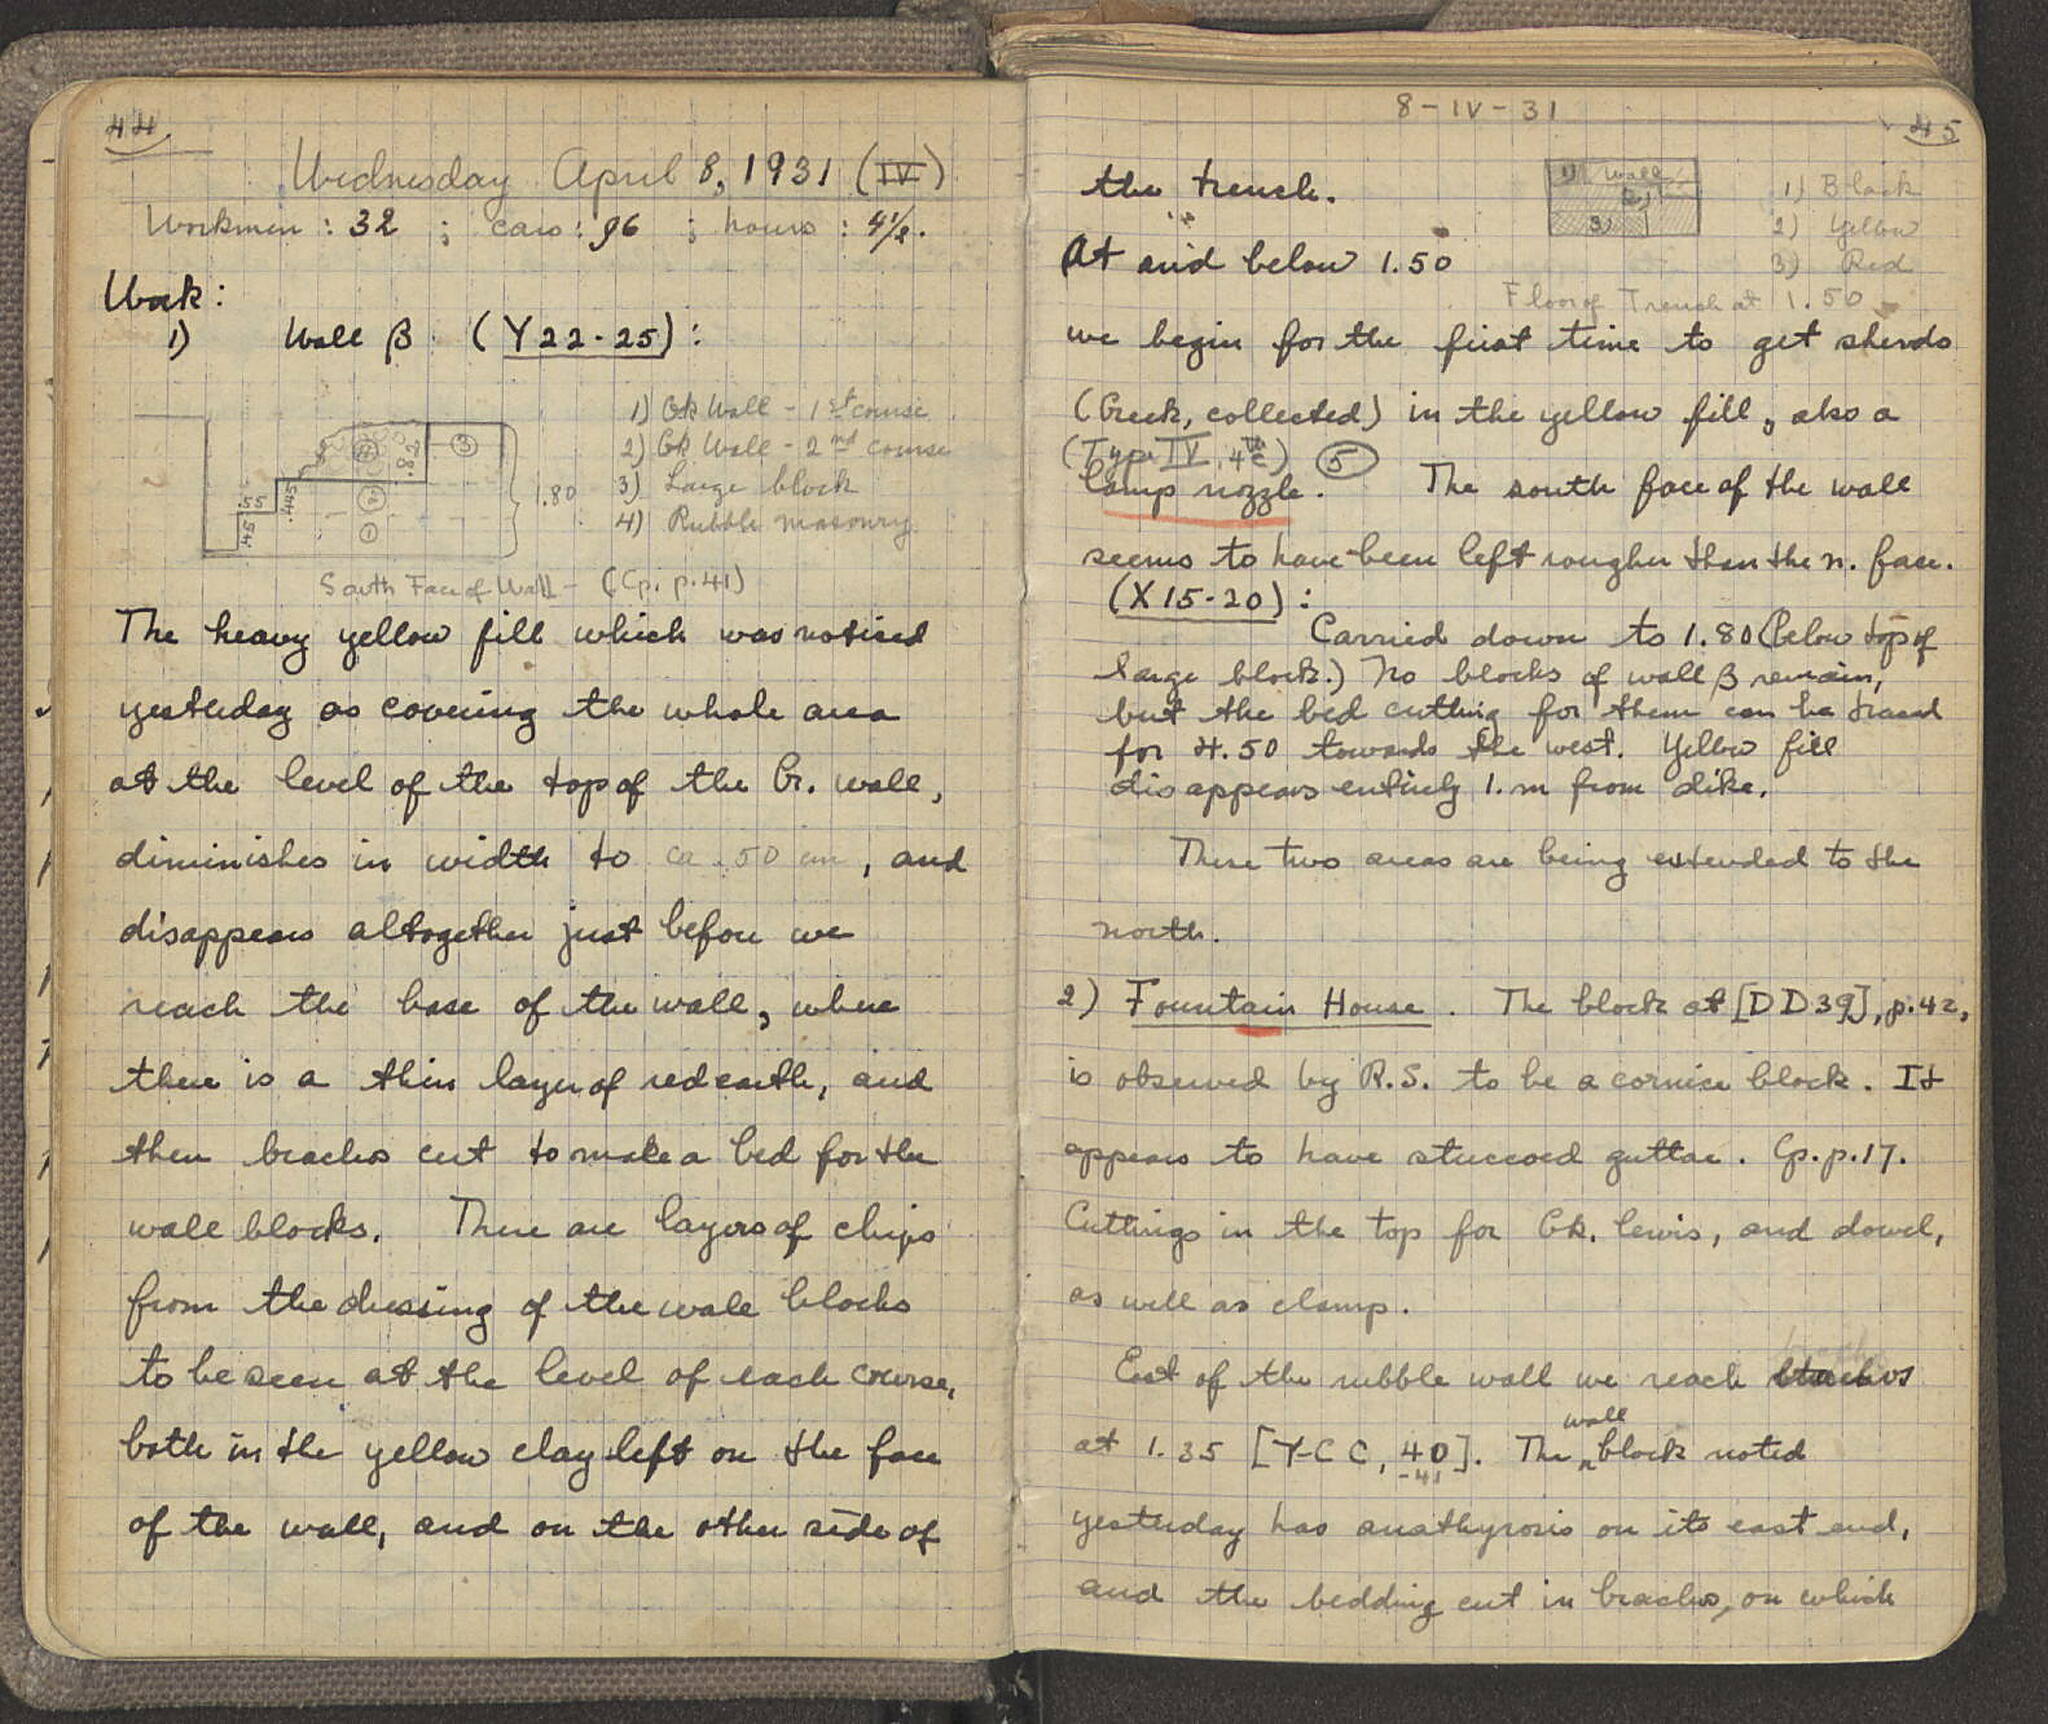 44
Wednesday April 8, 1931 (IV)
Workmen : 32 ; cars : 96 ; hours : 4½.
Work:
1) Wall β (Y22-25):
1) Gk Wall - 1st course
2) Gk Wall - 2nd course
3) Large block
4) Rubble masonry
4
3
2
1
.82
.445
.55
.45
1.80
South Face of Wall - (Cp. p.41)
The heavy yellow fill which was noticed
yesterday as covering the whole area
at the level of the top of the Gr. wall,
diminishes in width to ca .50 cm, and
disappears altogether just before we
reach the base of the wall, where
there is a thin layer of red earth, and
then brachos cut to make a bed for the
wall blocks. There are layers of chips
from the dressing of the wall blocks
to be seen at the level of each course,
both in the yellow clay left on the face
of the wall, and on the other side of
8-IV-31
45
the trench.
1) Wall
2)
3)
1) Black
2) Yellow
3) Red
Floor of Trench at 1.50
At and below 1.50
we begin for the first time to get sherds
(Greek, collected) in the yellow fill, also a
(Type IV, 4th c)
lamp nozzle. 5 The south face of the wall
seems to have been left rougher than the n. face.
(X15-20):
Carried down to 1.80 (below top of
large block.) No blocks of wall β remain,
but the bed cutting for them can be traced
for 4.50 towards the west. Yellow fill
disappears entirely 1.m from dike.
These two areas are being extended to the
north.
2) Fountain House. The block at [DD39], p.42,
is observed by R.S. to be a cornice block. It
appears to have stuccoed guttae. Cp. p.17.
Cuttings in the top for Gk. lewis, and dowel,
as well as clamp.
East of the rubble wall we reach brachos
at 1.35 [Y-CC, 40-41]. The wall block noted
yesterday has anathyrosis on its east end,
and the bedding cut in brachos, on which